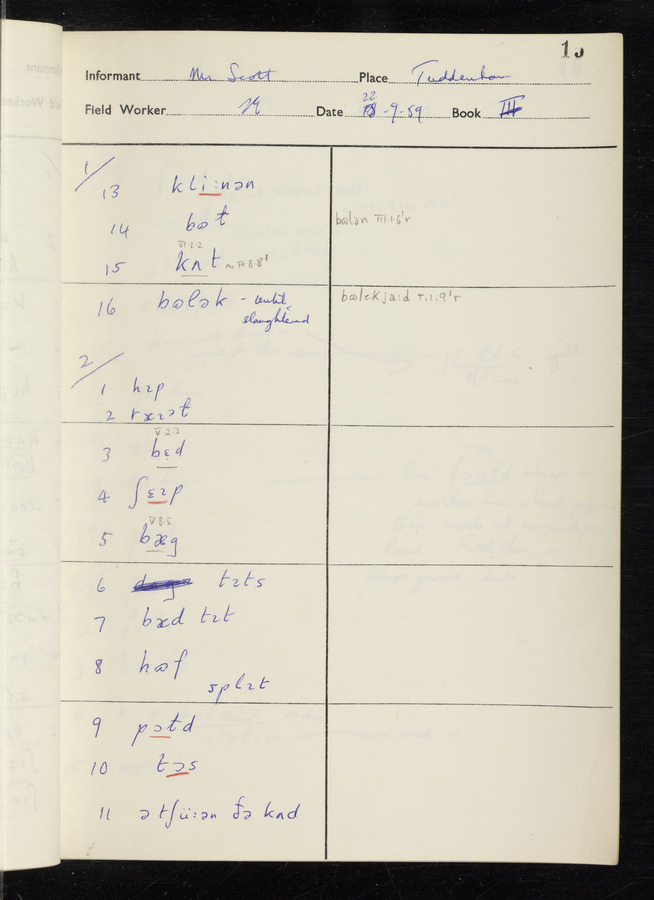 15
Informant Mr Scott Place Tuddenham
Field Worker Date 22 -9-59 Book III
1/
13 kli:nən
14 bɷt
bɷlən III.1.6'r
VI.2.2
15 kʌt ~ III.8.8'
16 bɷlək - until
slaughtered
bɷlɛkja:d I.1.9'r
2/
1 hɪp
2 ræɪət
V.2.2
3 bɛd
4 ʃɛɪp
V.8.5
5 bæg
6 tɪts
7 bæd tɪt
8 hɷf
splɪt
9 pɔtd
10 tɔs
11 ə tʃü:ən ðə kʌd